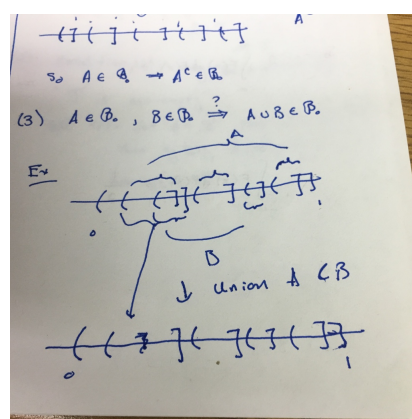 A
So A ∈ ℬ₀ → Aᶜ ∈ ℬ₀
(3) A ∈ ℬ₀, B ∈ ℬ₀ ?⇒ A ∪ B ∈ ℬ₀
A
Ex
( ( ( ] ] ( ] ( ] ( ] ]
0 1
B
↓ Union A & B
( ( ] ] ( ] ( ] ( ] ]
0 1